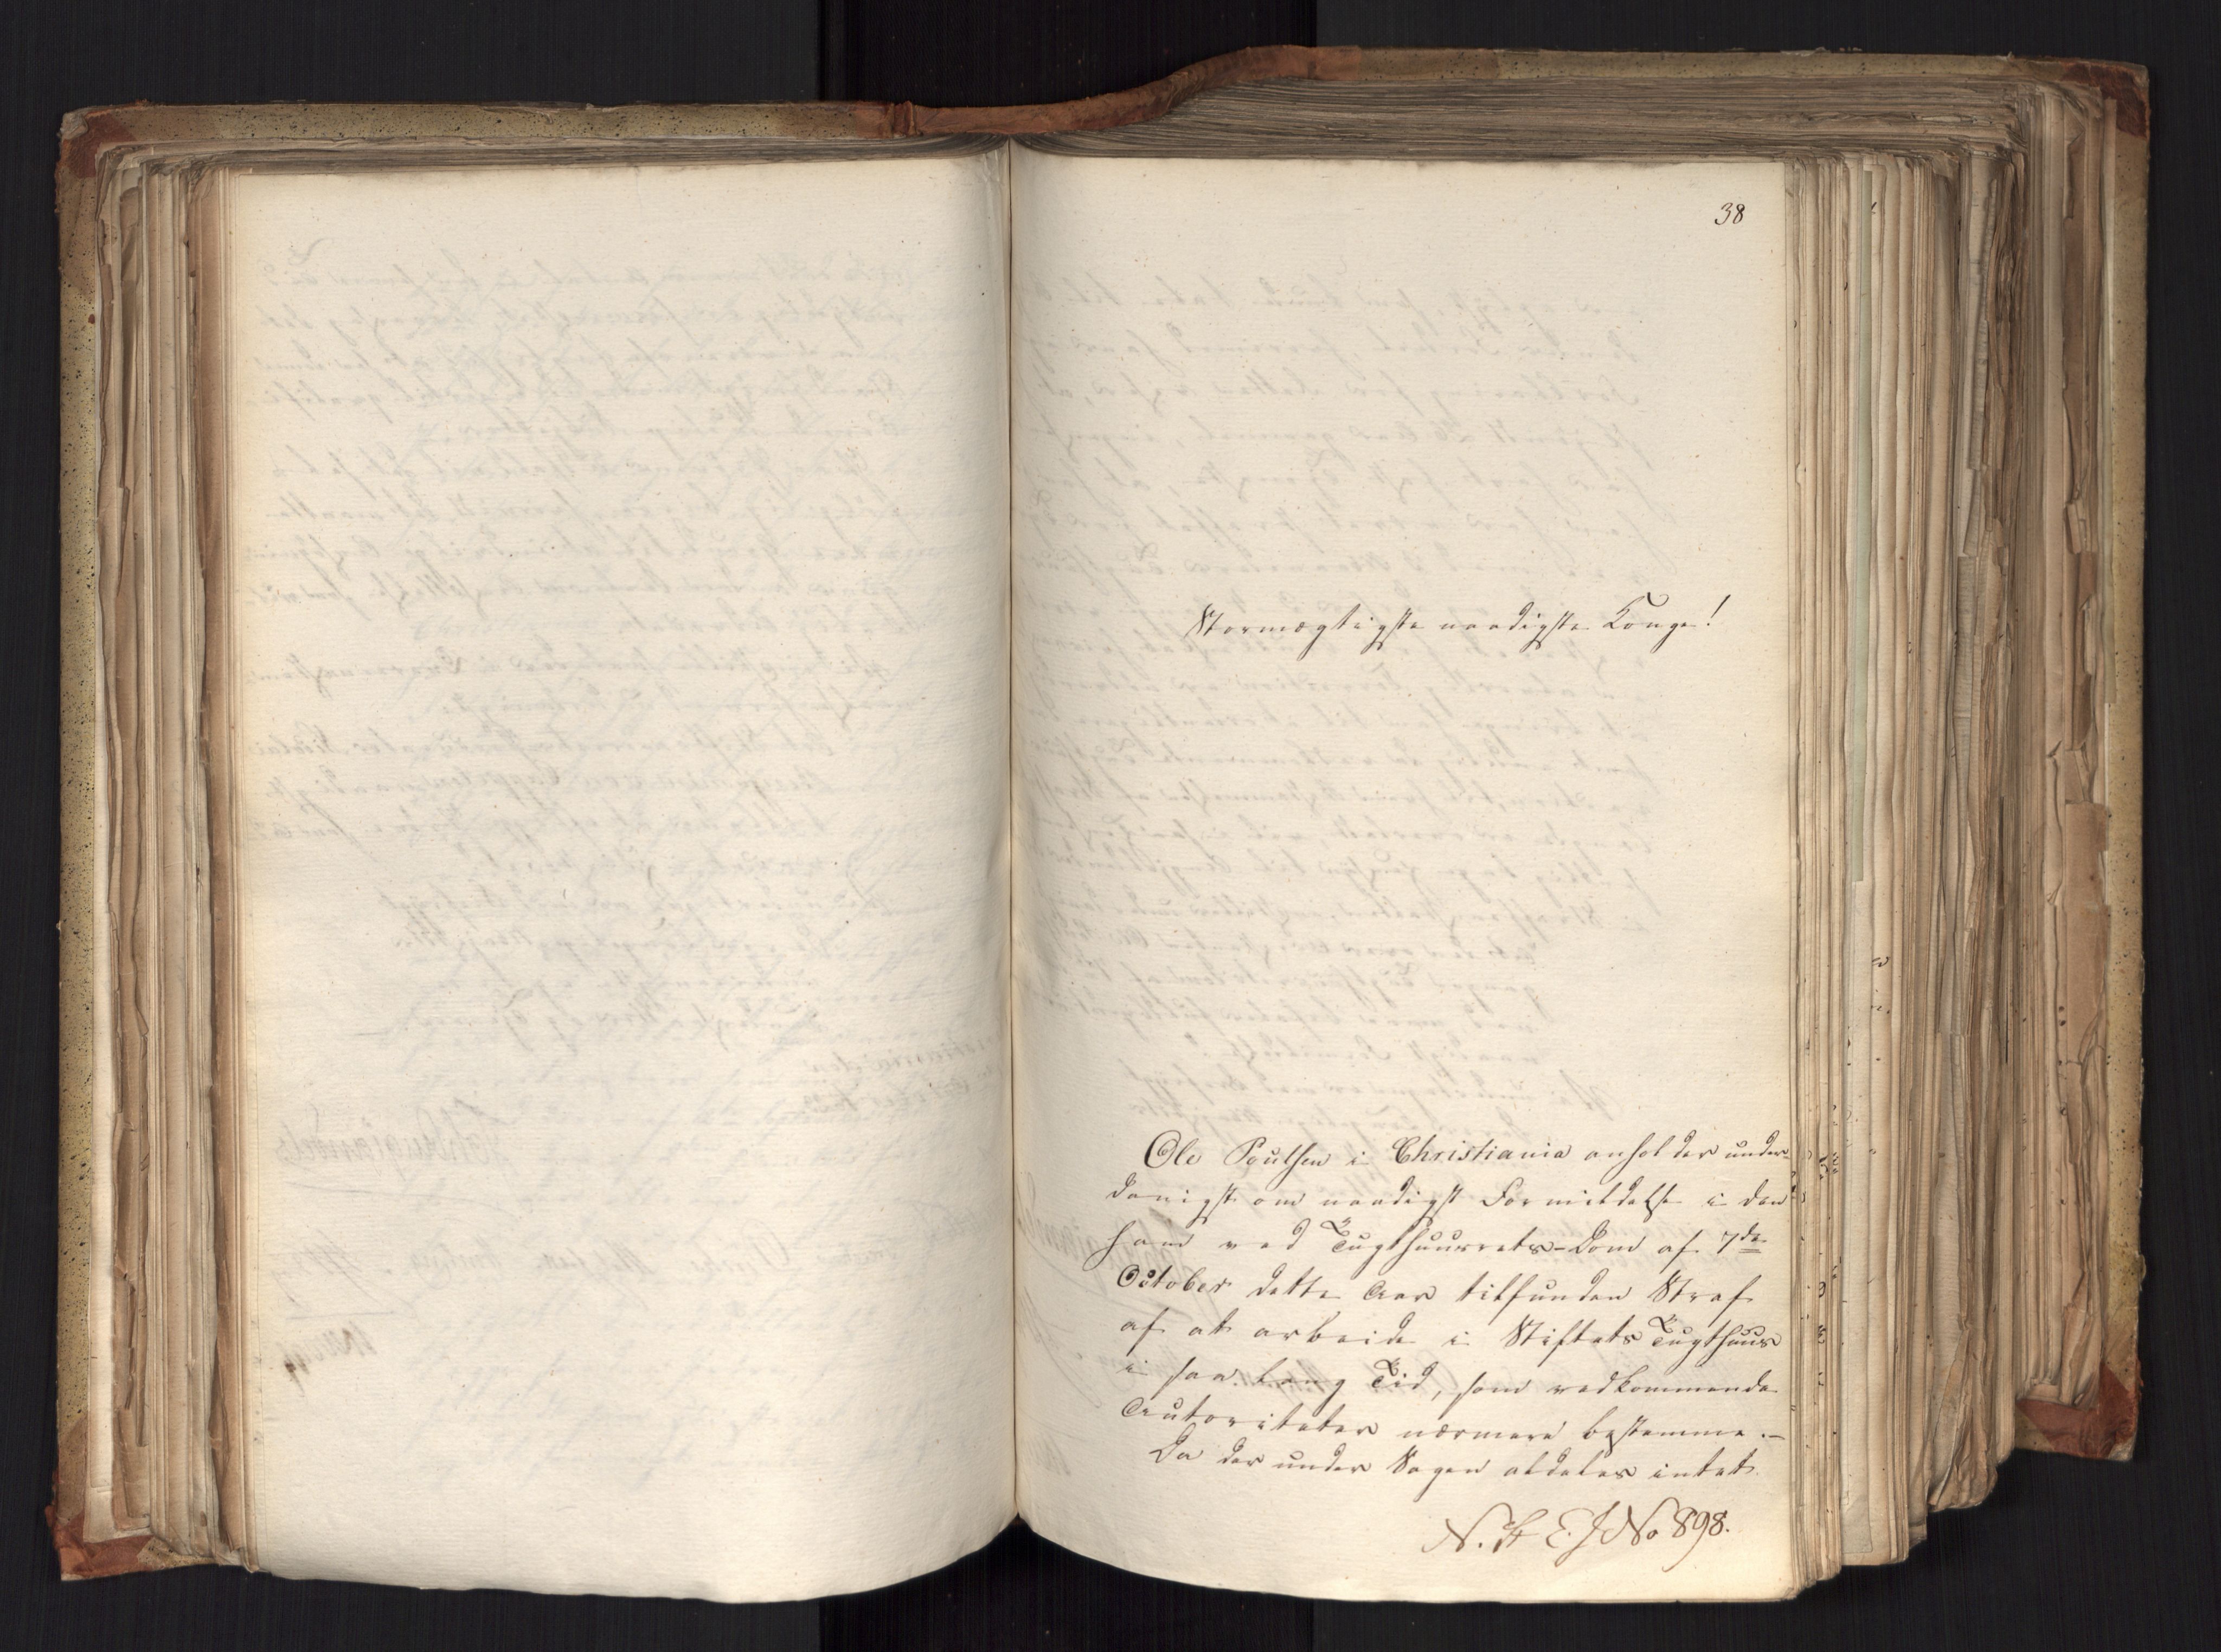 38
Stormægtigste naadigste Konge!
Ole Poulsen i Christiania anholder under-
danigst om naadigst Formildelse i den
ham ved Tugthuusrets-Dom af 7de
October dette Aar tilfunden Straf
af at arbeide i Stiftets Tugthuus
i saa lang Tid, som vedkommende
Autoriteter nærmere bestemme.-
Da der under Sagen aldeles intet
N. St E. J No 898.